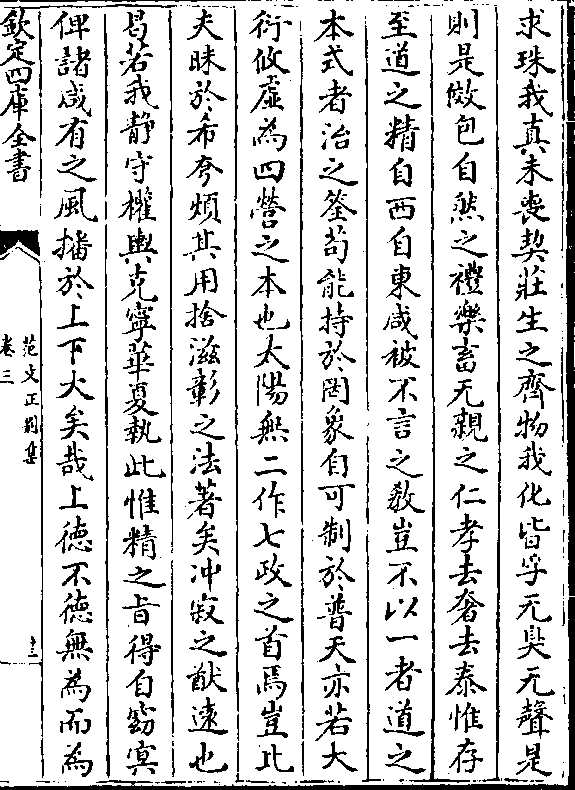 求珠我真未喪契莊生之齊物我化皆孚无臭无聲是
則是傚包自然之禮樂畜无親之仁孝去奢去泰惟存
至道之精自西自東咸被不言之教豈不以一者道之
本式者治之筌苟能持於罔象自可制於普天亦若大
衍攸虛為四營之本也太陽無二作七政之首焉豈比
夫昧於希夸煩其用捨滋彰之法著矣冲寂之猷遠也
曷若我靜守權輿克寧華夏執此惟精之旨得自窈冥
俾諸咸有之風播於上下大矣哉上德不德無為而為
欽定四庫全書
范文正別集
卷三
十三